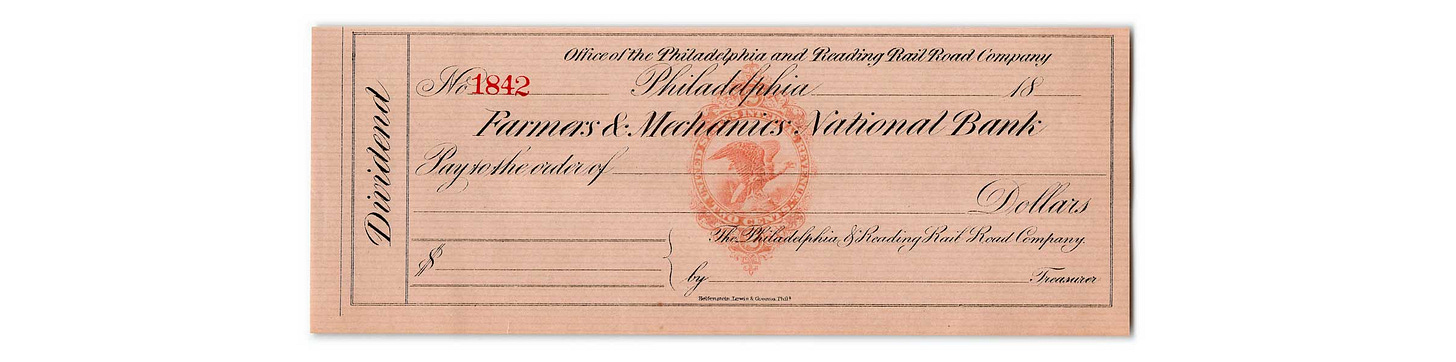 Dividend
Office of the Philadelphia and Reading Rail Road Company
No 1842 Philadelphia 18
Farmers & Mechanics National Bank
Pay to the order of
Dollars
UNITED STATES INTERNAL REVENUE
TWO CENTS
The Philadelphia & Reading Rail Road Company.
$
by Treasurer
Lewis & Phila